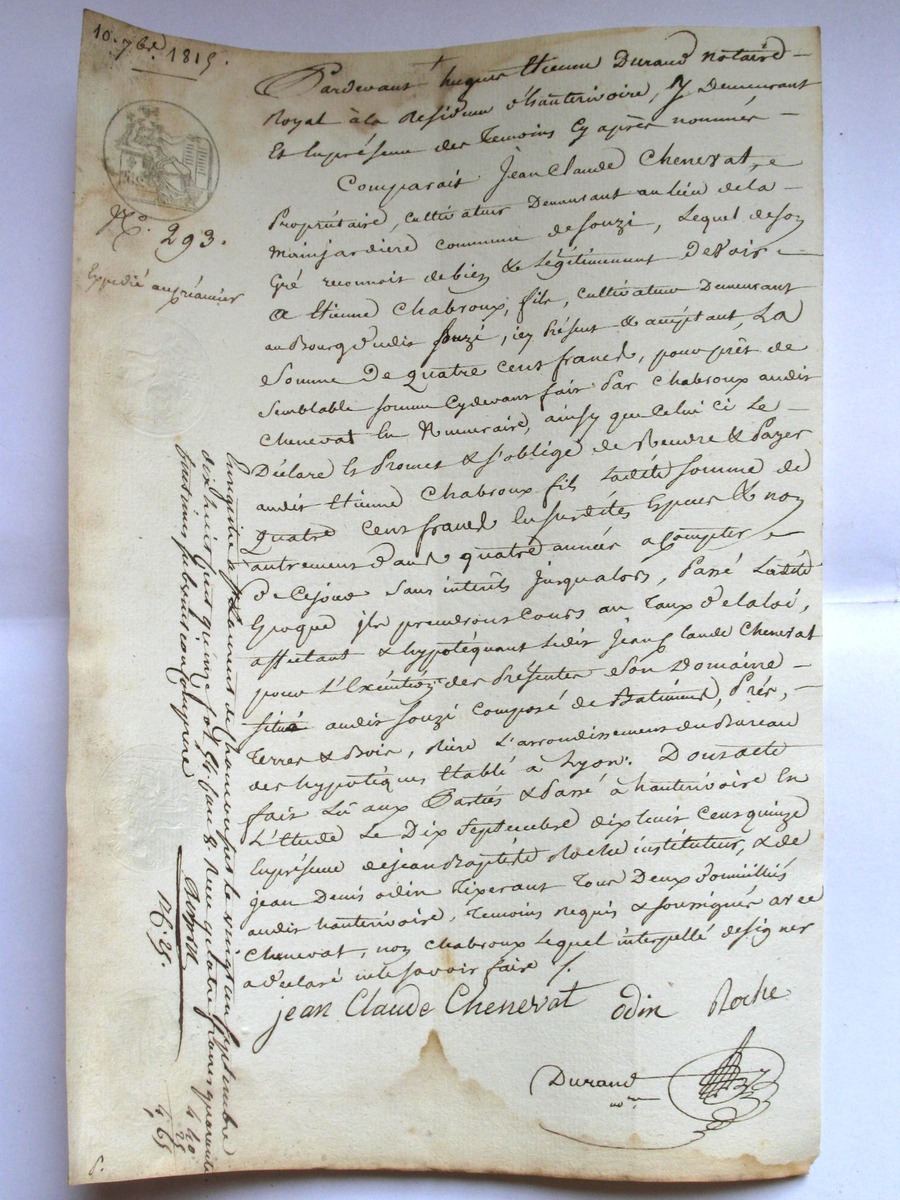 10. 7bre 1815
Pardevant hugues Etienne Durand notaire
Royal à la Résidence d'hauterivoire, y Demeurant
Et En présence des Temoins Cy après nommés
Comparait Jean Claude Chenevat,
Propriétaire, cultivateur Demeurant au lieu de la
mainjardiere commune de Souzi, Lequel de son
Gré reconnoit de bien & Légitimement Devoir
a Etienne Chabroux, fils, cultivateur Demeurant
au Bourg dudit Souzi, icy Présent & acceptant, La
Somme De quatre cent francs, pour prêt de
semblable somme Cydevant fait Par Chabroux audit
Chenevat En Numeraire, ainsy que Celui ci Le
Déclare Et Promet & s'oblige de Rendre & Payer
audit Etienne Chabroux fils Ladite Somme de
quatre cent francs En susdites Especes & non
autrement d'ans quatre années a Compter
de Cejour Sans interets Jusqualors, Passé Ladite
Epoque ils prendront Cours au Taux de la loi,
affectant & hypotéquant Ledit Jean Claude Chenevat
pour L'Exécution des Présentes Son Domaine
situé audit Souzi composé de Batiments, Prés,
Terres & Bois, Rière L'arrondissement du Bureau
des hypotéques Etabli à Lyon. Dont acte
fait Lû aux Parties & Passé à hauterivoire En
L'étude Le Dix Septembre dix huit Cent quinze
En présence de jean Baptiste Roche instituteur, & de
jean Denis odin Tixerant Tous Deux domiciliés
audit hauterivoire, Temoins Requis & soussignés avec
Chenevat, non Chabroux Lequel interpellé de signer
a déclaré ne le savoir faire
jean Claude Chenevat odin Roche
Durand
nore
No. 293.
Expédié au créancier
Enregistré à St Laurent de Chamousset le vingt un septembre
dix huit cent quinze fol. 74 Case 8. Reçu quatre francs quarante
centimes subvention comprise
16: 25.
4 40
25
4,65